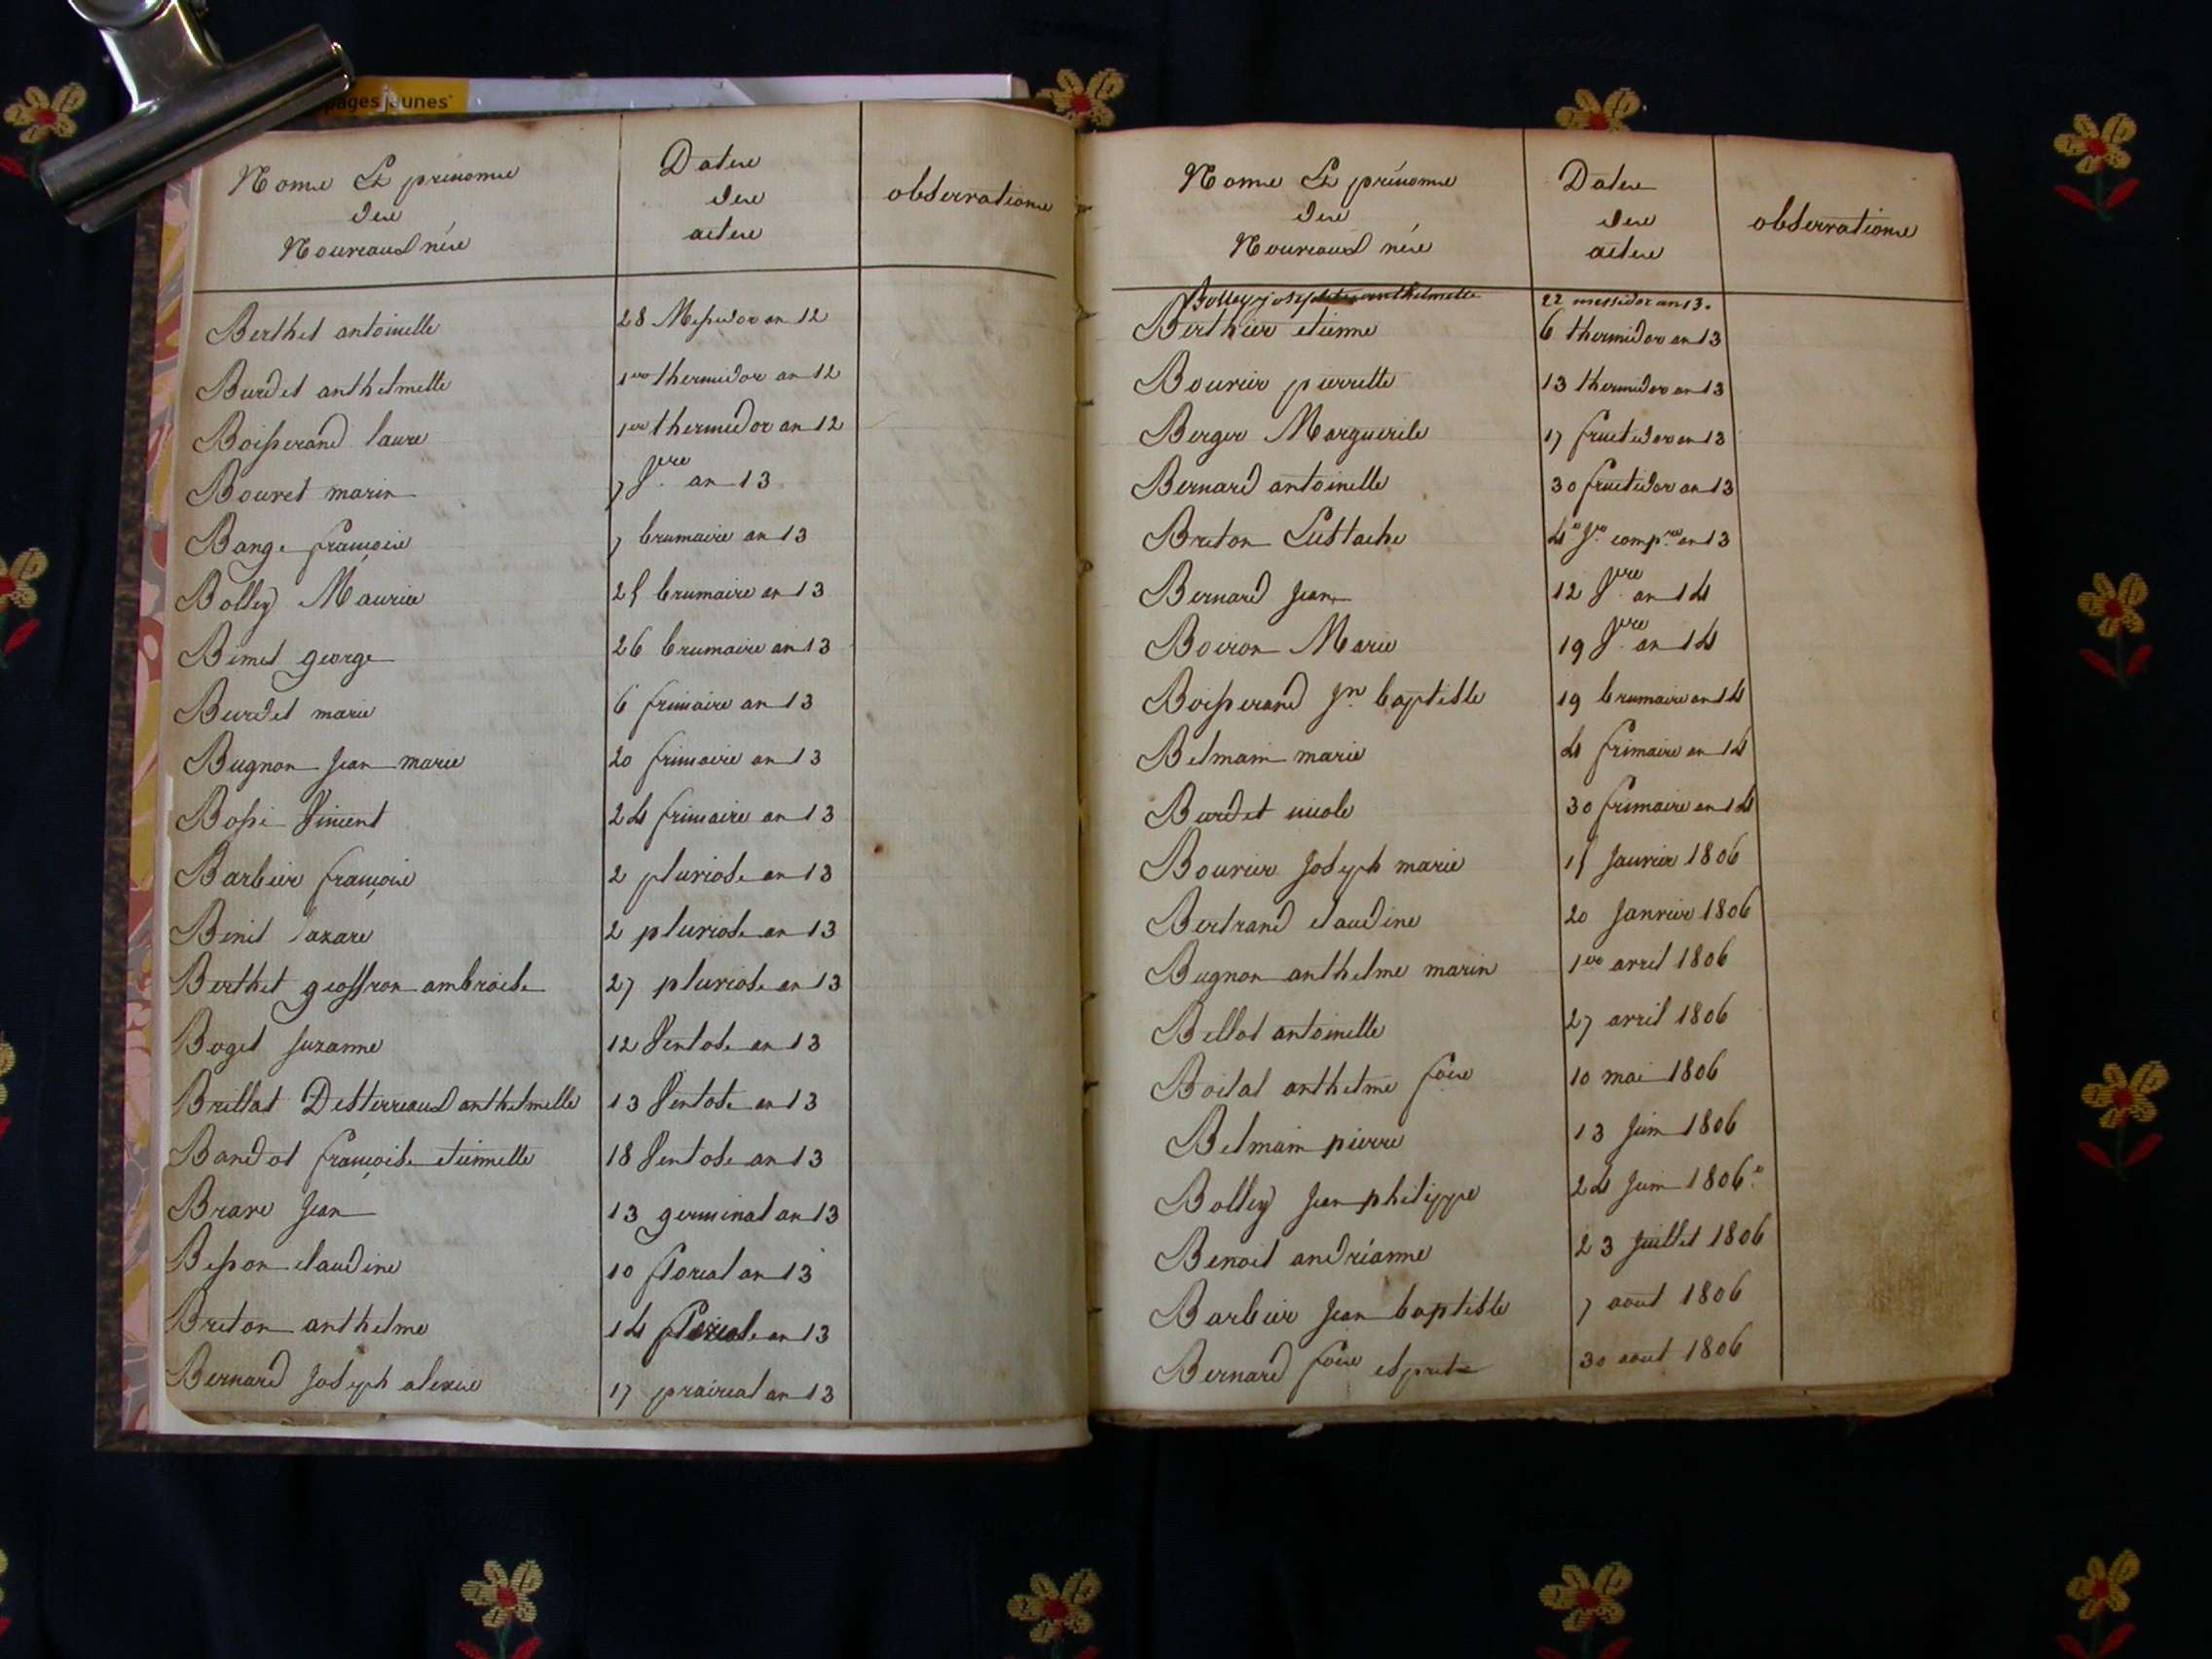 pages jaunes
Noms Et prénoms
des
Nouveaux nés
Dates
des
actes
observations
Berthet antoinette 28 Messidor an 12
Burdet anthelmette 1er thermidor an 12
Boisserand laure 1er thermidor an 12
Bouvet marin 7 Vre an 13
Bange françois 7 brumaire an 13
Bolley Maurice 25 brumaire an 13
Bimet george 26 brumaire an 13
Burdet marie 6 frimaire an 13
Bugnon Jean marie 20 frimaire an 13
Bossi Vincent 24 frimaire an 13
Barbier françois 2 pluviose an 13
Binet lazare 2 pluviose an 13
Berthet geoffron ambroise 27 pluviose an 13
Boget suzanne 12 Ventose an 13
Brillat Desterreaux anthelmette 13 Ventose an 13
Bandot françoise etiennette 18 Ventose an 13
Brave Jean 13 germinal an 13
Besson claudine 10 floreal an 13
Breton anthelme 14 floreal an 13
Bernard Joseph alexis 17 prairial an 13
Noms Et prénoms
des
Nouveaux nés
Dates
des
actes
observations
Bolley josephte anthelmette 22 messidor an 13.
Berthier etienne 6 thermidor an 13
Bouvier pierrette 13 thermidor an 13
Berger Marguerite 17 fructidor an 13
Bernard antoinette 30 fructidor an 13
Breton Eustache 4e Jr compre an 13
Bernard Jean 12 Vre an 14
Boiron Marie 19 Vre an 14
Boisserand Jn baptiste 19 brumaire an 14
Belmain marie 4 frimaire an 14
Burdet nicole 30 frimaire an 14
Bouvier Joseph marie 15 Janvier 1806
Bertrand claudine 20 Janvier 1806
Bugnon anthelme marin 1er avril 1806
Bellot antoinette 27 avril 1806
Boilat anthelme fois 10 mai 1806
Belmain pierre 13 Juin 1806
Bolley Jean philippe 24 Juin 1806
Benoit andréanne 23 Juillet 1806
Barbier Jean baptiste 7 aout 1806
Bernard fois esprit 30 aout 1806